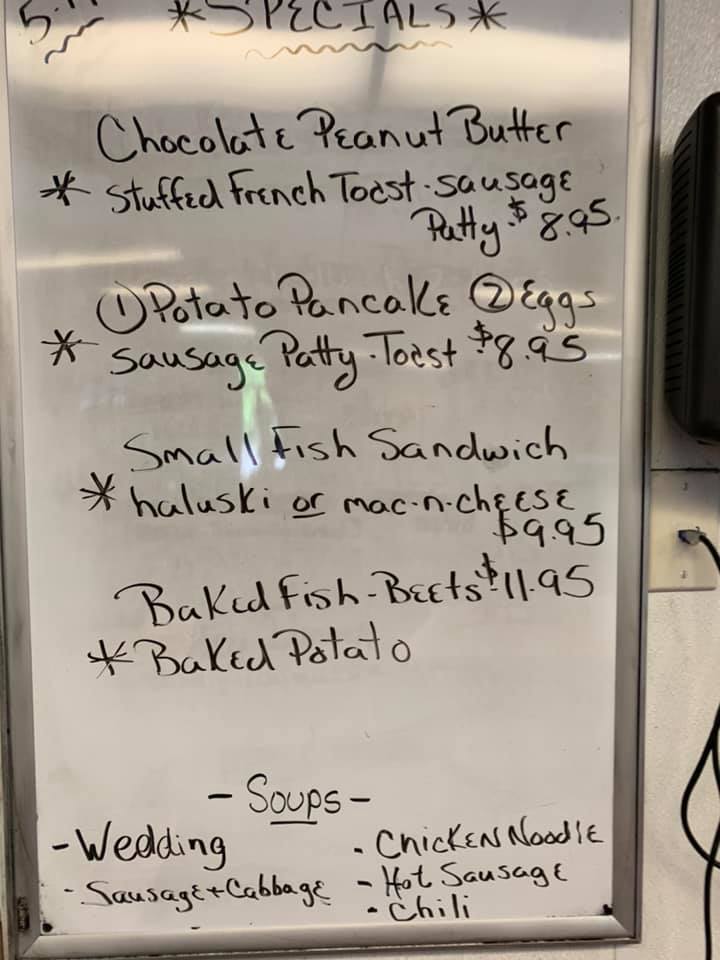 *SPECIALS*
Chocolate Peanut Butter
* Stuffed French Toast · sausage
Patty $8.95
① Potato Pancake ② Eggs
* Sausage Patty · Toast $8.95
Small Fish Sandwich
* haluski or mac-n-cheese
$9.95
Baked Fish - Beets $11.95
* Baked Potato
- Soups -
- Wedding
- Sausage + Cabbage
- Chicken Noodle
- Hot Sausage
- Chili